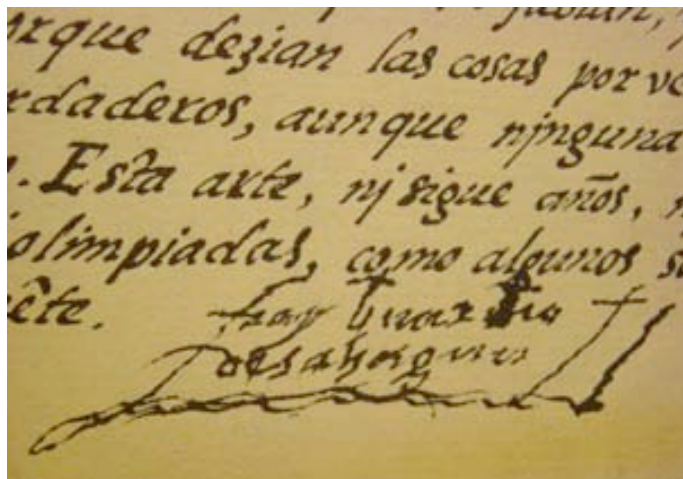 jubuin,
orque dezian las cosas por ve
rdaderos, aunque njnguna
n. Esta arte, nj sigue años, n
olimpiadas, como algunos su
ête.
fray bnardjno
de sahagun